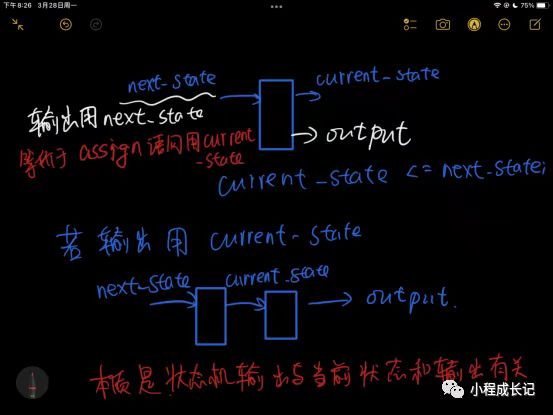 下午8:26 3月28日周一
75%
next-state
current-state
输出用next-state
output
等价于 assign语句用current
-state
current-state <= next-state;
若输出用 current-state
next-state
current-state
output.
本质是状态机输出与当前状态和输出有关
小程成长记